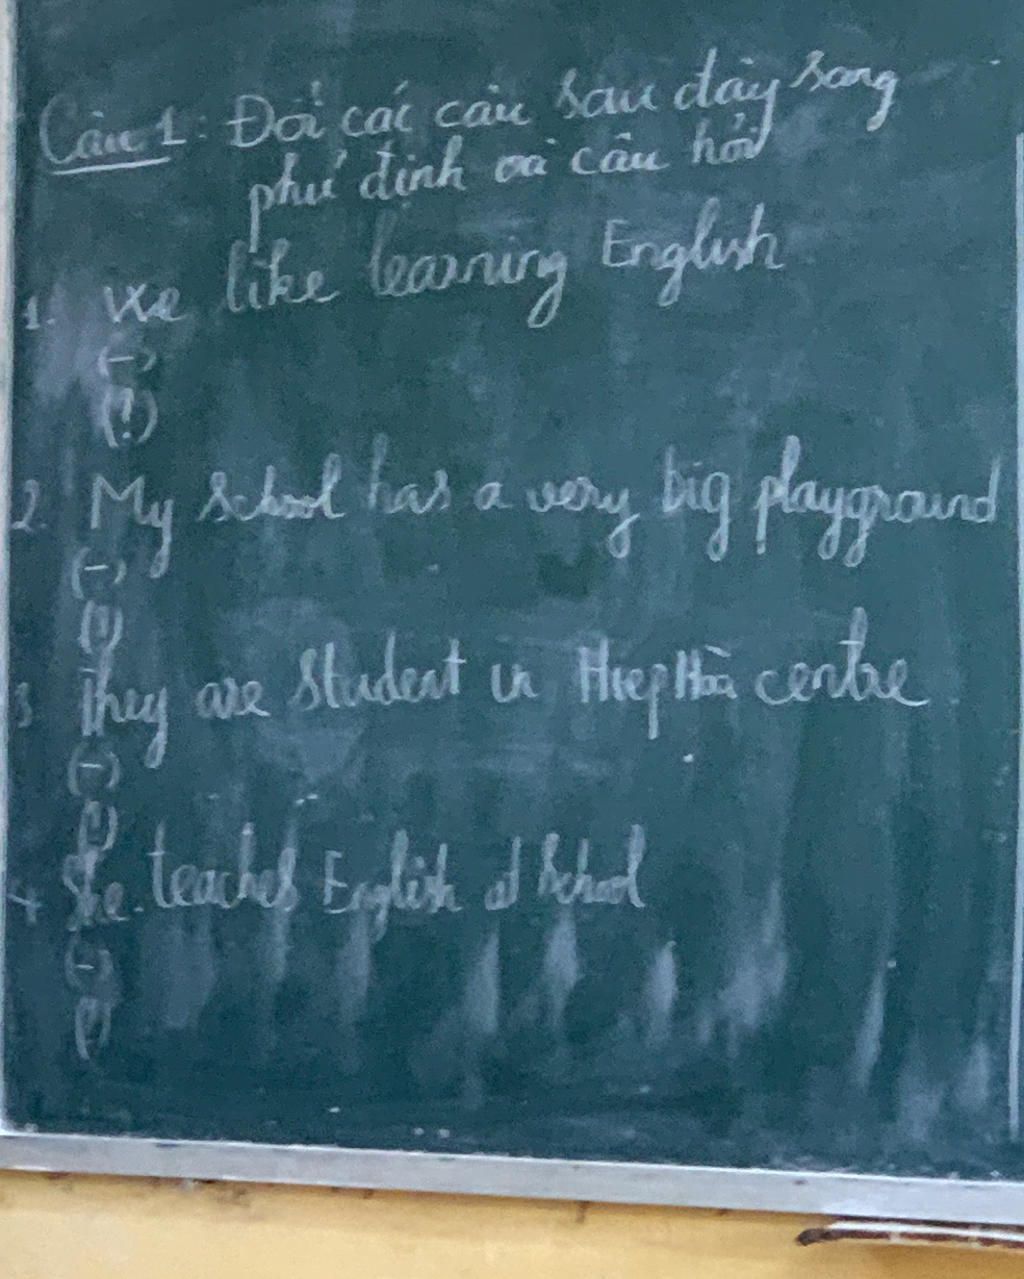 Câu 1: Đổi các câu sau đây sang
phủ định và câu hỏi
1. We like learning English
(-)
(?)
2. My school has a very big playground
(-)
(?)
3 They are student in Hiep Hòa centre
(-)
(?)
4 She teaches English at school
(-)
(?)